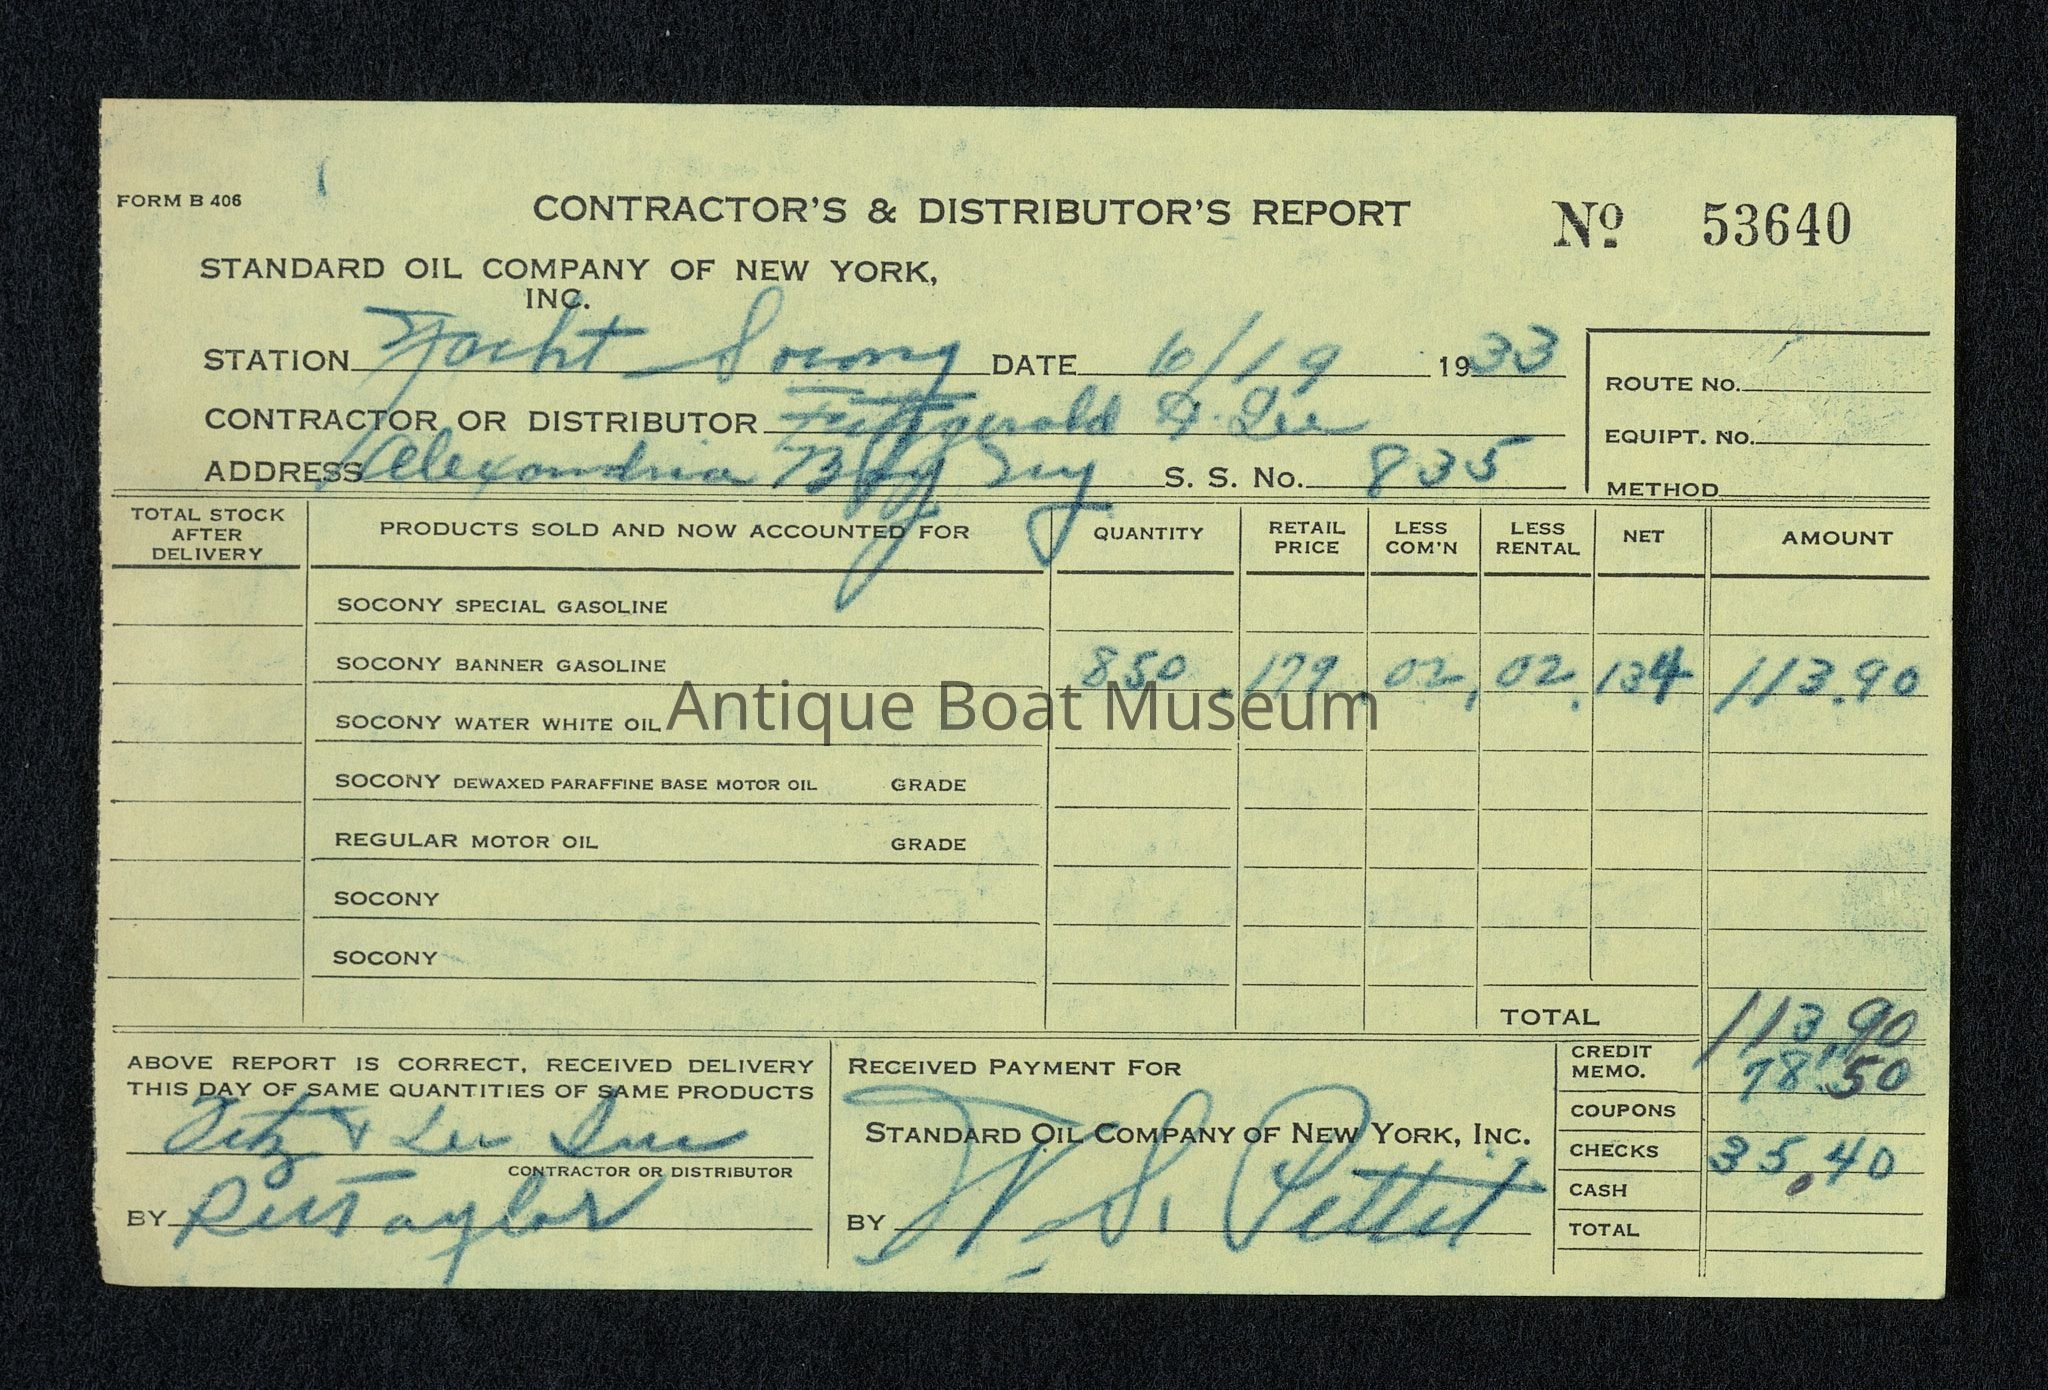 FORM B 406
CONTRACTOR'S & DISTRIBUTOR'S REPORT
No 53640
STANDARD OIL COMPANY OF NEW YORK,
INC.
STATION Yacht Socony DATE 6/19 1933
ROUTE No.
CONTRACTOR OR DISTRIBUTOR Fitzgerald & Lee
EQUIPT. No.
ADDRESS Alexandria Bay Ny S. S. No. 835
METHOD
TOTAL STOCK AFTER DELIVERY PRODUCTS SOLD AND NOW ACCOUNTED FOR QUANTITY RETAIL PRICE LESS COM'N LESS RENTAL NET AMOUNT
SOCONY SPECIAL GASOLINE
SOCONY BANNER GASOLINE 850 .179 .02 .02 .134 113.90
SOCONY WATER WHITE OIL
Antique Boat Museum
SOCONY DEWAXED PARAFFINE BASE MOTOR OIL GRADE
REGULAR MOTOR OIL GRADE
SOCONY
SOCONY
TOTAL 113.90
ABOVE REPORT IS CORRECT, RECEIVED DELIVERY
THIS DAY OF SAME QUANTITIES OF SAME PRODUCTS
Fitz & Lee Inc
CONTRACTOR OR DISTRIBUTOR
BY Taylor
RECEIVED PAYMENT FOR
STANDARD OIL COMPANY OF NEW YORK, INC.
BY S. Pettit
CREDIT MEMO. 78.50
COUPONS
CHECKS 35.40
CASH
TOTAL